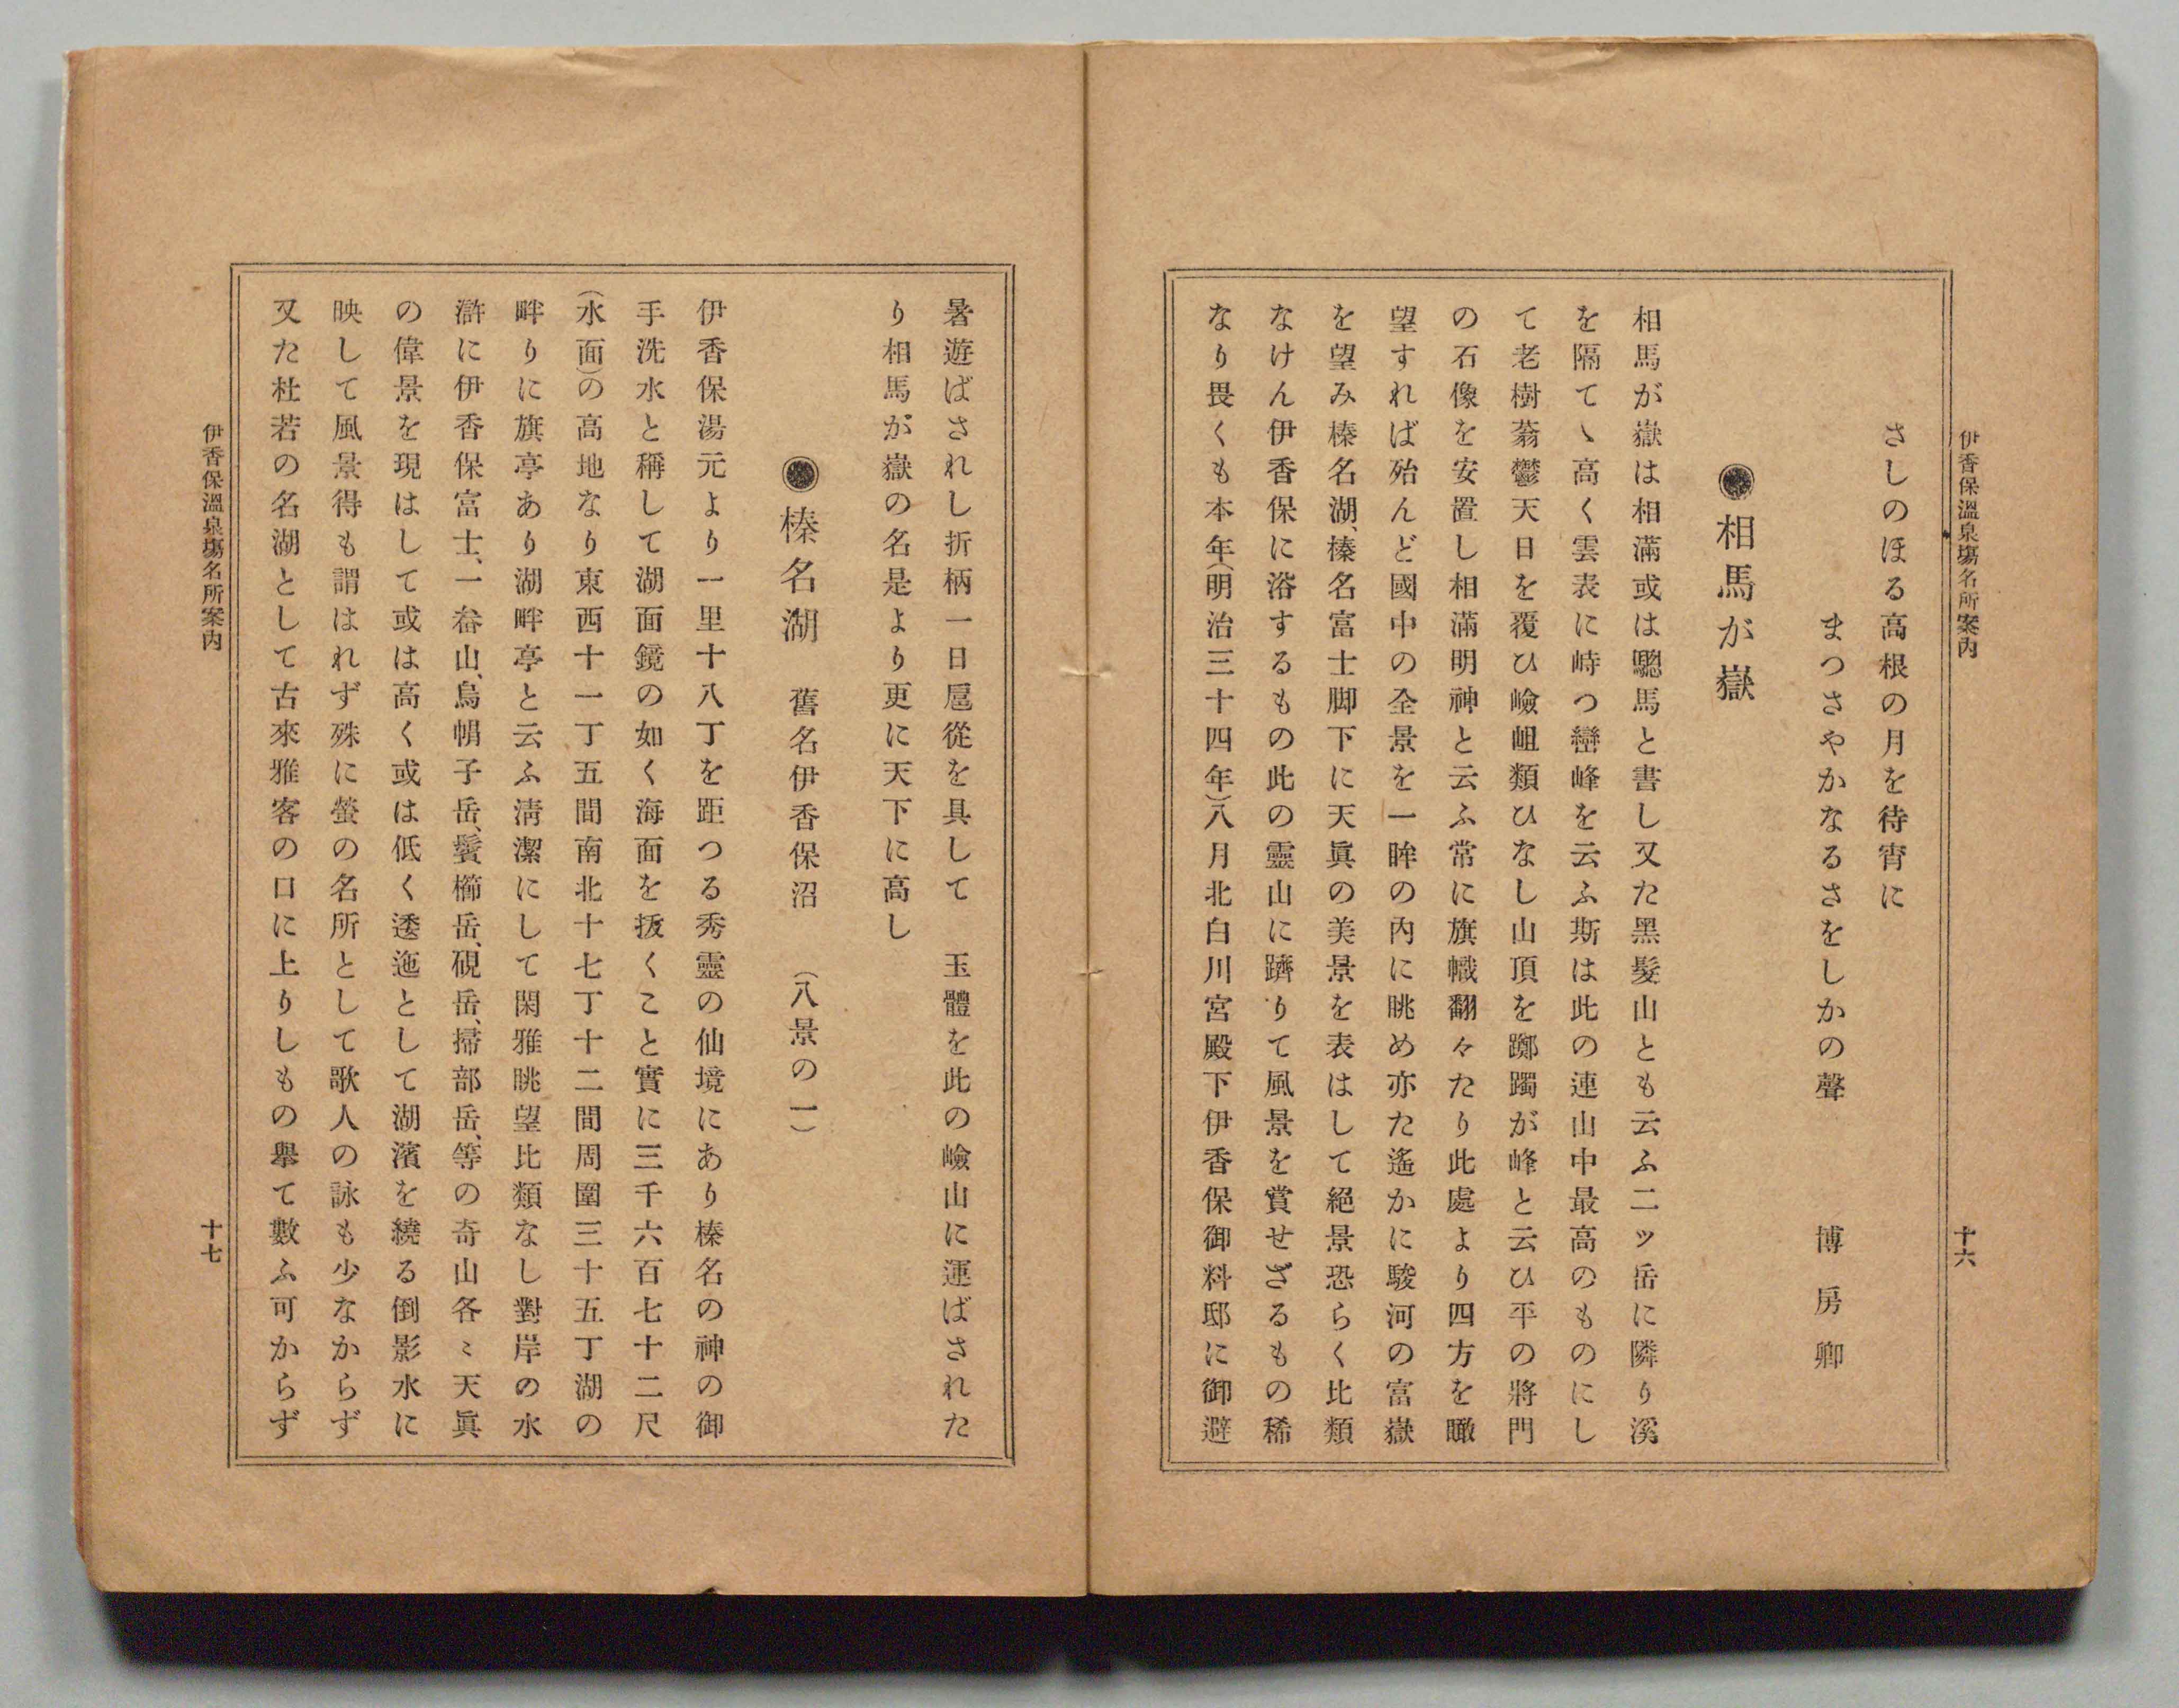 伊香保溫泉塲名所案內
十六
さしのほる高根の月を待宵に
まつさやかなるさをしかの聲　博房卿
◉相馬が嶽
相馬が嶽は相滿或は驄馬と書し又た黑髮山とも云ふ二ッ岳に隣り溪
を隔てヽ高く雲表に峙つ巒峰を云ふ斯は此の連山中最高のものにし
て老樹蓊鬱天日を覆ひ嶮岨類ひなし山頂を躑躅が峰と云ひ平の將門
の石像を安置し相滿明神と云ふ常に旗幟翻々たり此處より四方を瞰
望すれば殆んど國中の全景を一眸の內に眺め亦た遙かに駿河の富嶽
を望み榛名湖、榛名富士脚下に天眞の美景を表はして絕景恐らく比類
なけん伊香保に浴するもの此の靈山に躋りて風景を賞せざるもの稀
なり畏くも本年(明治三十四年)八月北白川宮殿下伊香保御料邸に御避
暑遊ばされし折柄一日扈從を具して　玉體を此の嶮山に運ばされた
り相馬が嶽の名是より更に天下に高し
◉榛名湖　舊名伊香保沼　(八景の一)
伊香保湯元より一里十八丁を距つる秀靈の仙境にあり榛名の神の御
手洗水と稱して湖面鏡の如く海面を抜くこと實に三千六百七十二尺
(水面)の高地なり東西十一丁五間南北十七丁十二間周圍三十五丁湖の
畔りに旗亭あり湖畔亭と云ふ淸潔にして閑雅眺望比類なし對岸の水
滸に伊香保富士、一畚山、烏帽子岳、鬢櫛岳、硯岳、掃部岳、等の奇山各〻天眞
の偉景を現はして或は高く或は低く逶迤として湖濱を繞る倒影水に
映して風景得も謂はれず殊に螢の名所として歌人の詠も少なからず
又た杜若の名湖として古來雅客の口に上りしもの擧て數ふ可からず
伊香保溫泉塲名所案內
十七